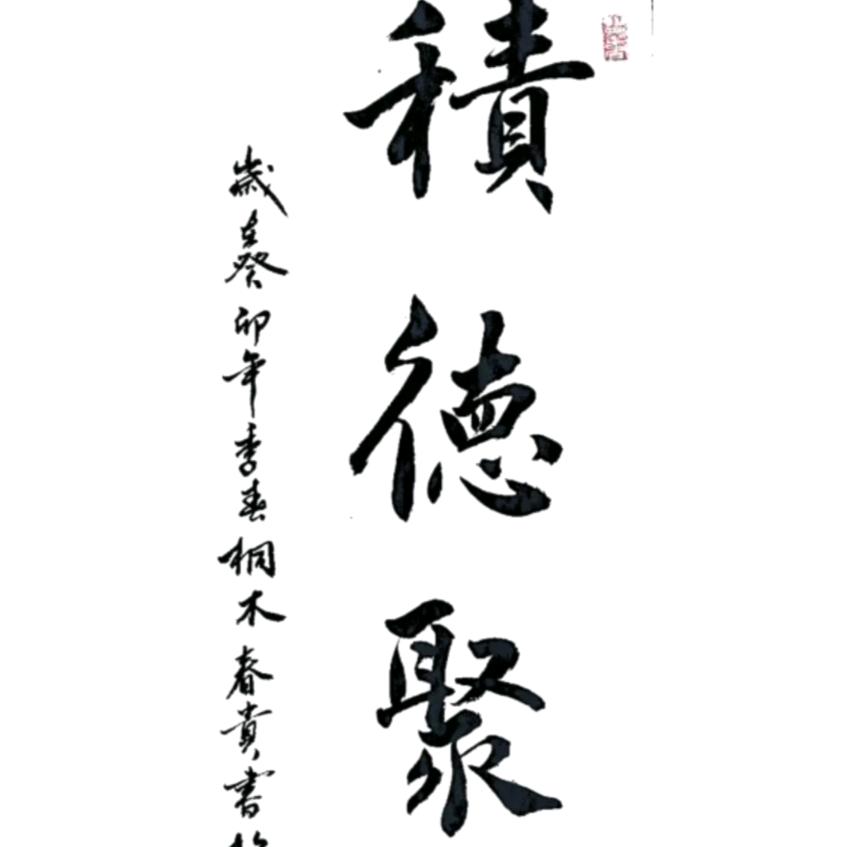 積德聚
歲在癸卯年季春桐木春貴書於